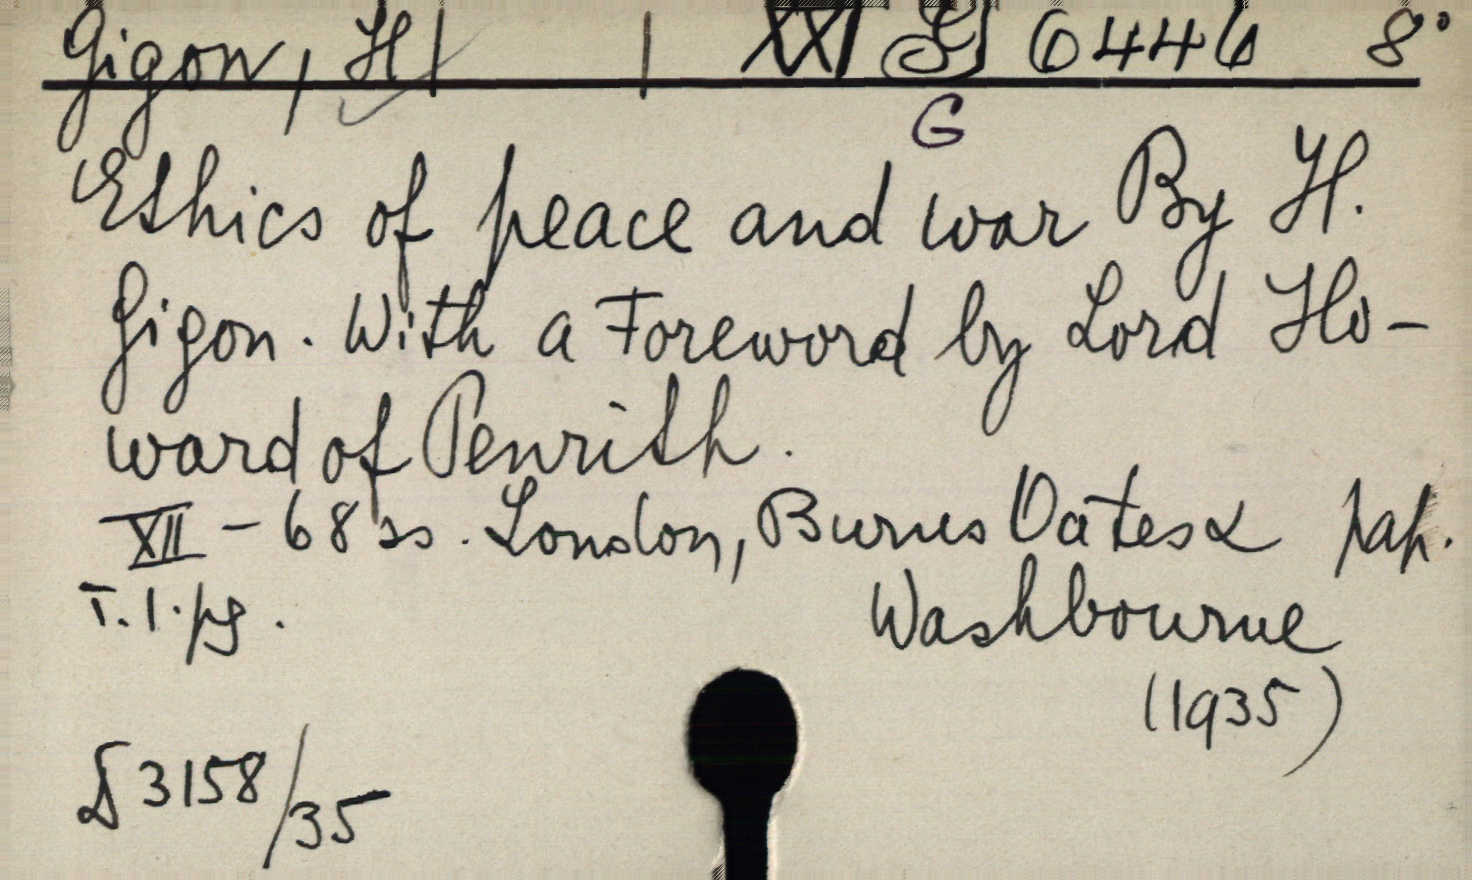 Gigon, H | | XXI G 6446 8°
G
Ethics of peace and war By H.
Gigon. With a Foreword by Lord Ho-
ward of Penrith.
XII - 68 ss. London, Burns Oates & pap.
T. 1. pg. Washbourne
(1935)
3158/35